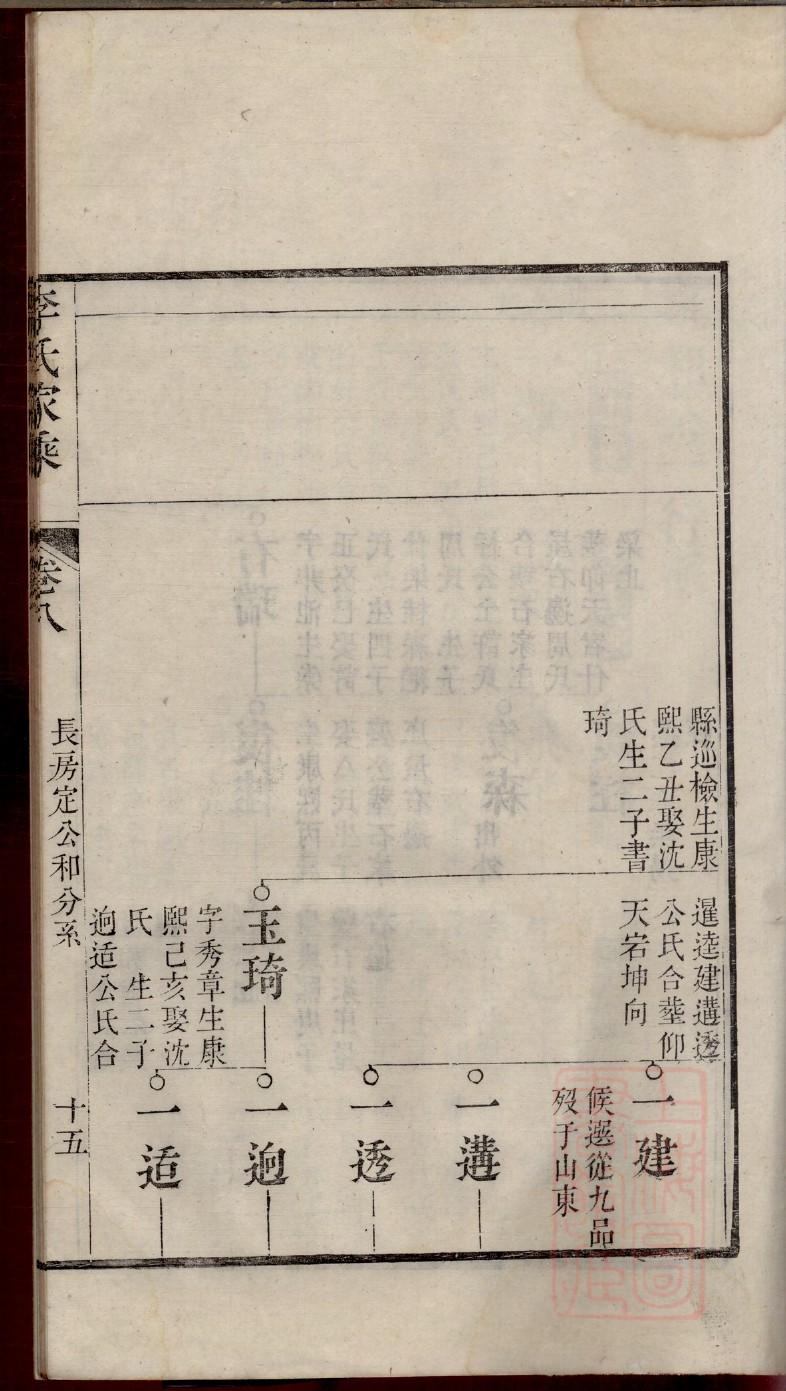 縣巡檢生康
熙乙丑娶沈
氏生二子書
琦
暹逵建遘透
公氏合塟仰
天宕坤向
一建
候選從九品
歿于山東
一遘
一透
玉琦
字秀章生康
熙己亥娶沈
氏 生二子
逈适公氏合
一逈
一适
李氏家乘
卷八
長房定公和分系
十五